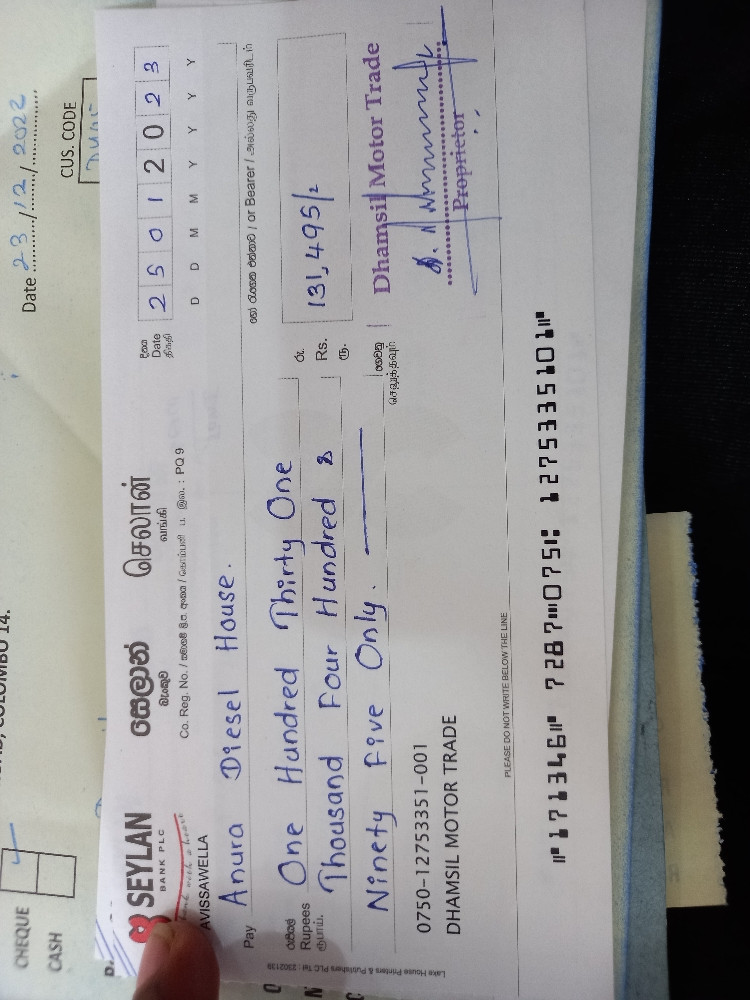 COLOMBO 14.
Date 23/12/2022
CUS. CODE
CHEQUE
CASH
SEYLAN
BANK PLC
සෙලාන්
බැංකුව
செலான்
வங்கி
Co. Reg. No. / PQ 9
AVISSAWELLA
දිනය
Date
திகதி
25012023
D D M M Y Y Y Y
Pay Anura Diesel House.
හෝ රැගෙන එන්නාට / or Bearer / அல்லது
රුපියල්
Rupees
ரூபாய்
One Hundred Thirty One
Thousand Four Hundred &
Ninety Five Only.
රු.
Rs.
ரூ.
131,495/-
Dhamsil Motor Trade
Proprietor
0750-12753351-001
DHAMSIL MOTOR TRADE
PLEASE DO NOT WRITE BELOW THE LINE
⑈171346⑈ 7287⑉075⑆ 1275335101⑈
Lake House Printers & Publishers PLC Tel : 2302139